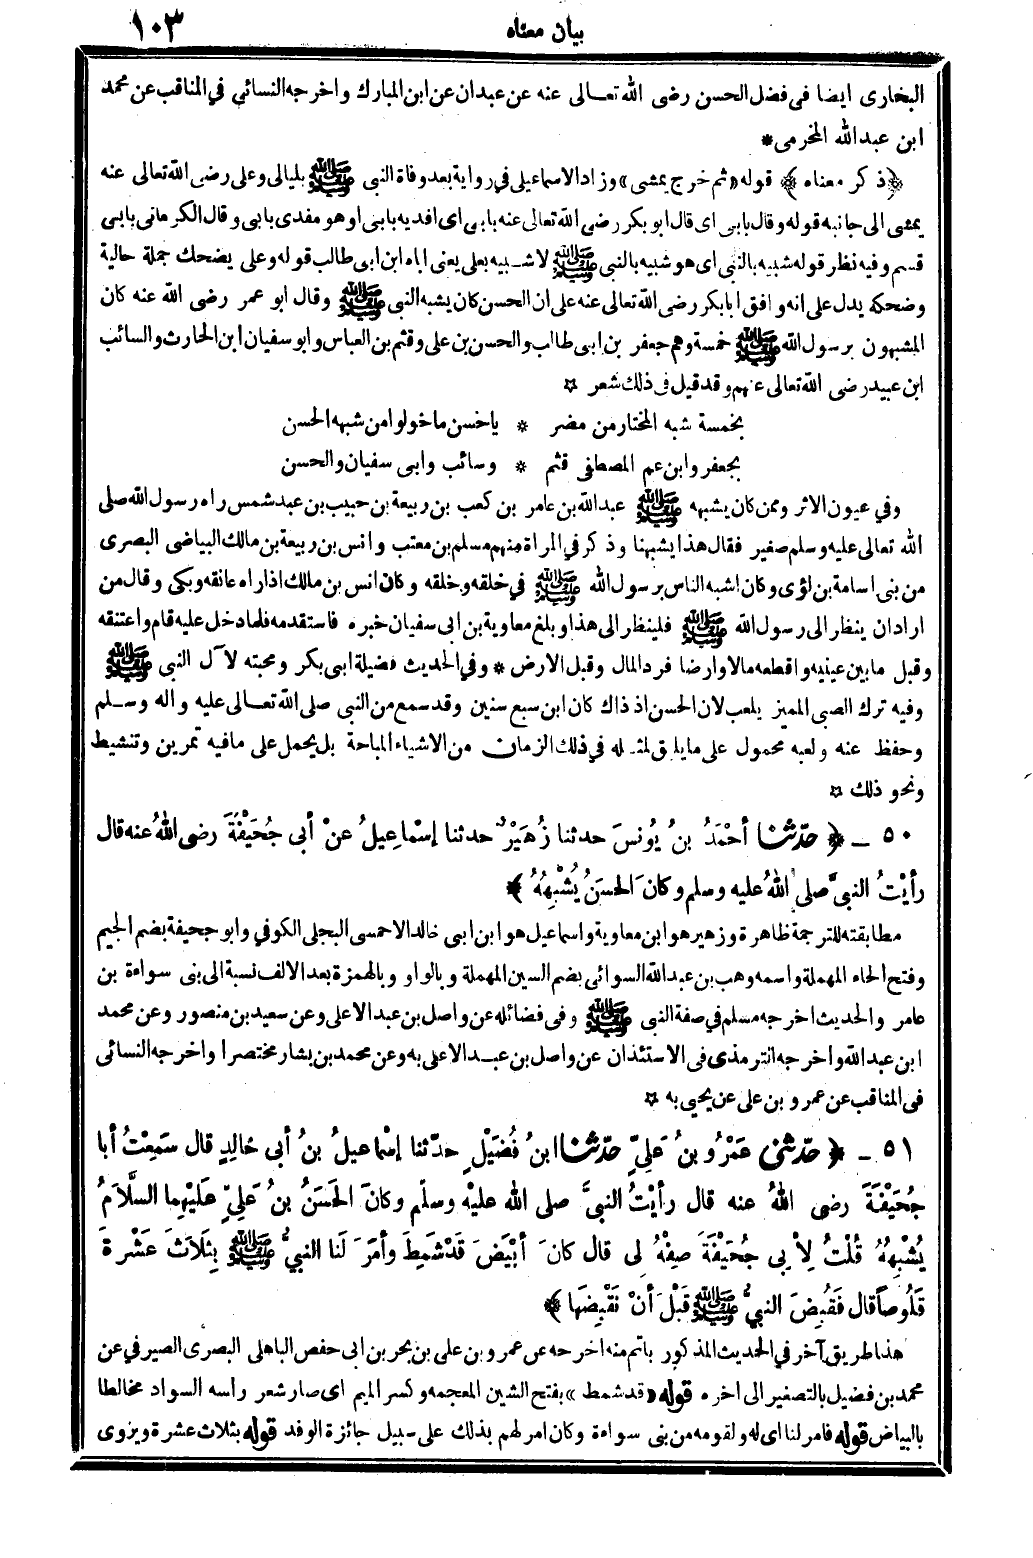 بيان معناه ١٠٣
البخارى ايضا فى فضل الحسن رضى الله تعالى عنه عن عبدان عن ابن المبارك واخرجه النسائي في المناقب عن محمد
ابن عبدالله المخرمى *
﴿ذكر معناه﴾ قوله «ثم خرج يمشى» وزاد الاسماعيلى في رواية بعد وفاة النبى ﷺ بليالى وعلى رضى الله تعالى عنه
يمشى الى جانبه قوله وقال بابى اى قال ابو بكر رضى الله تعالى عنه بابى اى افديه بابى او هو مفدى بابى وقال الكرمانى بابى
قسم وفيه نظر قوله شبيه بالنبى اى هو شبيه بالنبى ﷺ لا شبيه بعلى يعنى اباه ابن ابى طالب قوله وعلى يضحك جملة حالية
وضحكه يدل على انه وافق ابابكر رضى الله تعالى عنه على ان الحسن كان يشبه النبى ﷺ وقال ابو عمر رضى الله عنه كان
المشبهون برسول الله ﷺ خمسة وهم جعفر بن ابى طالب والحسن بن على وقثم بن العباس وابو سفيان ابن الحارث والسائب
ابن عبيد رضى الله تعالى عنهم وقد قيل فى ذلك شعر ☆
بخمسة شبه المختار من مضر * ياحسن ماخولوا من شبهه الحسن
بجعفر وابن عم المصطفى قثم * وسائب وابى سفيان والحسن
وفي عيون الاثر وممن كان يشبهه ﷺ عبدالله بن عامر بن كعب بن ربيعة بن حبيب بن عبد شمس راه رسول الله صلى
الله تعالى عليه وسلم صغير فقال هذا يشبهنا وذكر في المراة منهم مسلم بن معتب وانس بن ربيعة بن مالك البياضى البصرى
من بنى اسامة بن لؤى وكان اشبه الناس برسول الله ﷺ في خلقه وخلقه وكان انس بن مالك اذا راه عانقه وبكى وقال من
اراد ان ينظر الى رسول الله ﷺ فلينظر الى هذا وبلغ معاوية بن ابى سفيان خبره فاستقدمه فلما دخل عليه قام واعتنقه
وقبل مابين عينيه واقطعه مالا وارضا فرد المال وقبل الارض * وفي الحديث فضيلة ابى بكر ومحبته لآل النبى ﷺ
وفيه ترك الصبى المميز يلعب لان الحسن اذ ذاك كان ابن سبع سنين وقد سمع من النبى صلى الله تعالى عليه واله وسلم
وحفظ عنه ولعبه محمول على مايليق لمثله في ذلك الزمان من الاشياء المباحة بل يحمل على مافيه تمرين وتنشيط
ونحو ذلك ☆
٥٠ _ ﴿ حدّثنا أحْمَدُ بنُ يُونسَ حدثنا زُهَيْرٌ حدثنا إسْماعِيلُ عنْ أبى جُحَيْفَةَ رضى اللهُ عنه قال
رأيْتُ النبىَّ صلى اللهُ عليه وسلم وكانَ الحسَنُ يُشْبِهُهُ ﴾
مطابقته للترجمة ظاهرة وزهير هو ابن معاوية واسماعيل هو ابن ابى خالد الاحمسى البجلى الكوفي وابو جحيفة بضم الجيم
وفتح الحاء المهملة واسمه وهب بن عبد الله السوائى بضم السين المهملة وبالواو وبالهمزة بعد الالف نسبة الى بنى سواءة بن
عامر والحديث اخرجه مسلم في صفة النبى ﷺ وفى فضائله عن واصل بن عبد الاعلى وعن سعيد بن منصور وعن محمد
ابن عبد الله واخرجه الترمذى فى الاستئذان عن واصل بن عبد الاعلى به وعن محمد بن بشار مختصرا واخرجه النسائى
فى المناقب عن عمرو بن على عن يحيى به ☆
٥١ _ ﴿ حدّثنى عَمْرُو بنُ عَلِيٍّ حدّثنا ابنُ فُضَيْلٍ حدّثنا إسْماعيلُ بنُ أبى خالِدٍ قال سَمِعْتُ أبا
جُحَيْفَةَ رضى اللهُ عنه قال رأيْتُ النبىَّ صلى الله عليْه وسلّم وكانَ الحَسَنُ بنُ عَلِيٍّ عَلَيْهِما السَّلاَمُ
يُشْبِهُهُ قُلْتُ لِأبِى جُحَيْفَةَ صِفْهُ لِى قال كانَ أبْيَضَ قَدْ شَمِطَ وأمَرَ لَنا النبىُّ ﷺ بِثَلاَثَ عَشْرَةَ
قَلُوصاً قال فَقُبِضَ النبىُّ ﷺ قَبْلَ أنْ نَقْبِضَها ﴾
هذا طريق آخر في الحديث المذكور باتم منه اخرجه عن عمرو بن على بن بحر بن ابى حفص الباهلى البصرى الصيرفي عن
محمد بن فضيل بالتصغير الى اخره قوله «قد شمط» بفتح الشين المعجمه وكسر الميم اى صار شعر رأسه السواد مخالطا
بالبياض قوله فامر لنا اى له ولقومه من بنى سواءة وكان امر لهم بذلك على سبيل جائزة الوفد قوله بثلاث عشرة ويروى